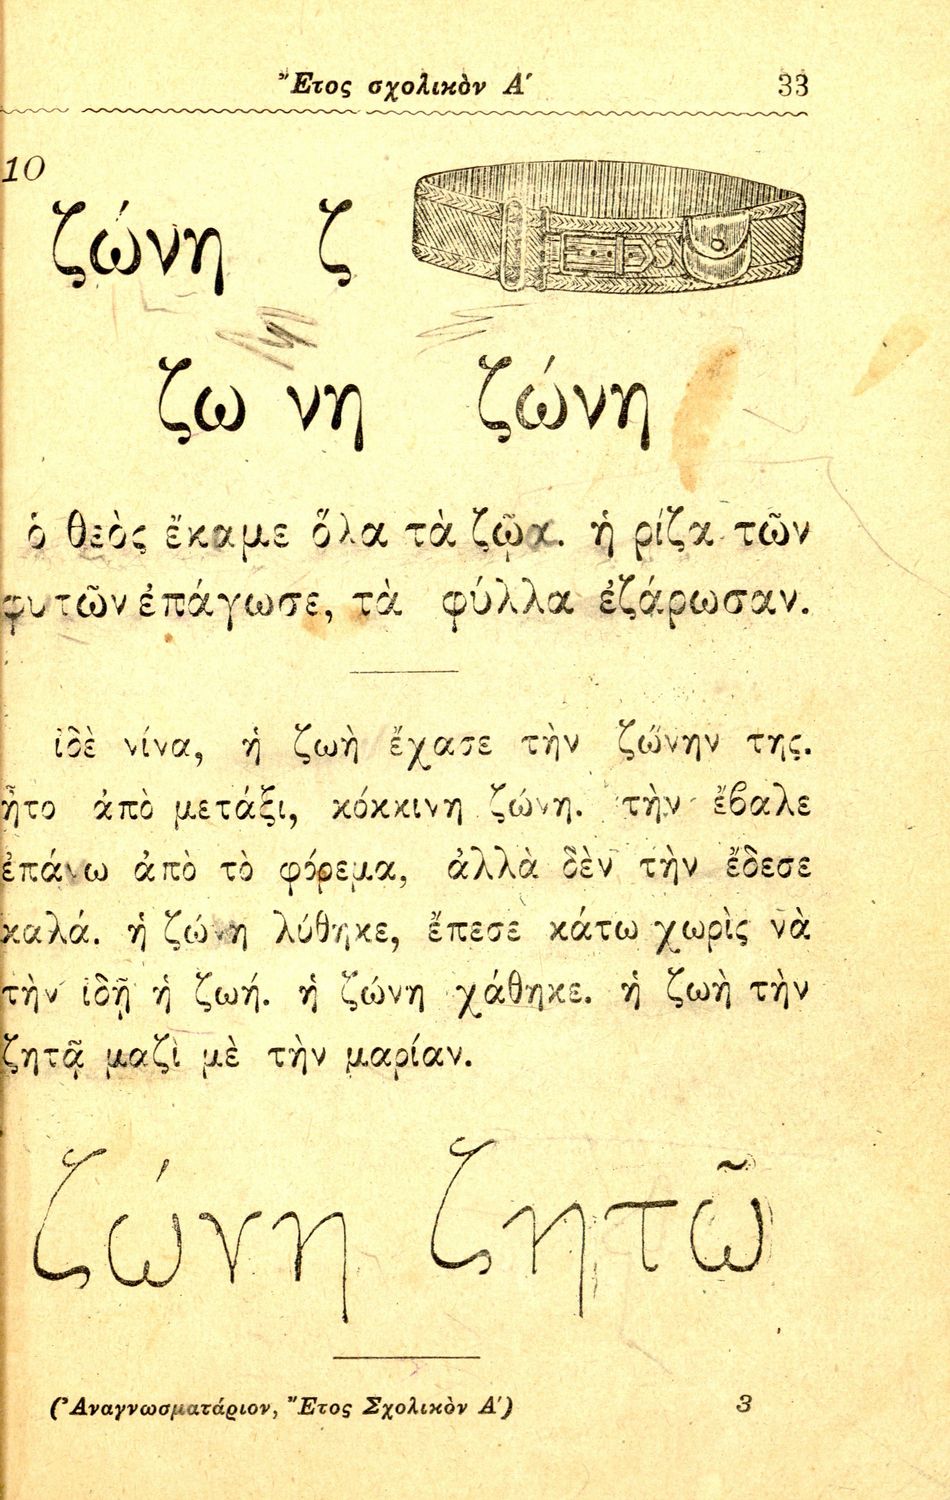 Ἔτος σχολικὸν Α΄ 33
10
ζώνη ζ
ζω νη ζώνη
ὁ θεὸς ἔκαμε ὅλα τὰ ζῷα. ἡ ρίζα τῶν
φυτῶν ἐπάγωσε, τὰ φύλλα ἐζάρωσαν.
ἰδὲ νίνα, ἡ ζωὴ ἔχασε τὴν ζώνην της.
ἦτο ἀπὸ μετάξι, κόκκινη ζώνη. τὴν ἔβαλε
ἐπάνω ἀπὸ τὸ φόρεμα, ἀλλὰ δὲν τὴν ἔδεσε
καλά. ἡ ζώνη λύθηκε, ἔπεσε κάτω χωρὶς νὰ
τὴν ἰδῇ ἡ ζωή. ἡ ζώνη χάθηκε. ἡ ζωὴ τὴν
ζητᾷ μαζὶ μὲ τὴν μαρίαν.
ζώνη ζητῶ
(Ἀναγνωσματάριον, Ἔτος Σχολικὸν Α΄) 3